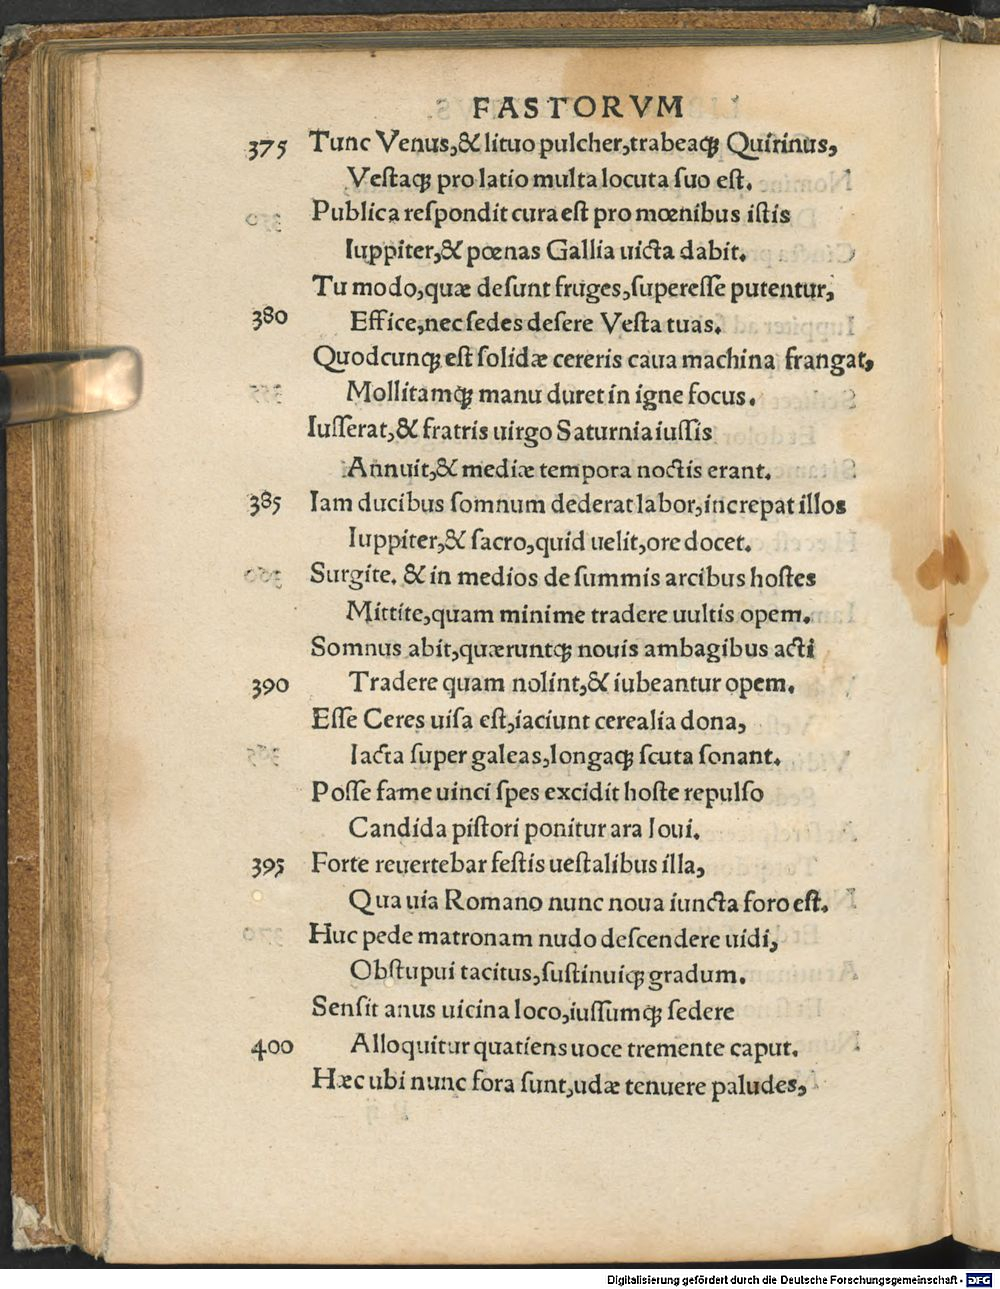 FASTORVM
375 Tunc Venus,& lituo pulcher,trabeaqꝫ Quirinus,
Vestaqꝫ pro latio multa locuta suo est.
Publica respondit cura est pro mœnibus istis
Iuppiter,& pœnas Gallia uicta dabit.
Tu modo,quæ desunt fruges,superesse putentur,
380 Effice,nec sedes desere Vesta tuas.
Quodcunqꝫ est solidæ cereris caua machina frangat,
Mollitamqꝫ manu duret in igne focus.
Iusserat,& fratris uirgo Saturnia iussis
Annuit,& mediæ tempora noctis erant.
385 Iam ducibus somnum dederat labor,increpat illos
Iuppiter,& sacro,quid uelit,ore docet.
Surgite. & in medios de summis arcibus hostes
Mittite,quam minime tradere uultis opem.
Somnus abit,quæruntqꝫ nouis ambagibus acti
390 Tradere quam nolint,& iubeantur opem.
Esse Ceres uisa est,iaciunt cerealia dona,
Iacta super galeas,longaqꝫ scuta sonant.
Posse fame uinci spes excidit hoste repulso
Candida pistori ponitur ara Ioui.
395 Forte reuertebar festis uestalibus illa,
Qua uia Romano nunc noua iuncta foro est.
Huc pede matronam nudo descendere uidi,
Obstupui tacitus,sustinuiqꝫ gradum.
Sensit anus uicina loco,iussumqꝫ sedere
400 Alloquitur quatiens uoce tremente caput.
Hæc ubi nunc fora sunt,udæ tenuere paludes,
Digitalisierung gefördert durch die Deutsche Forschungsgemeinschaft - DFG